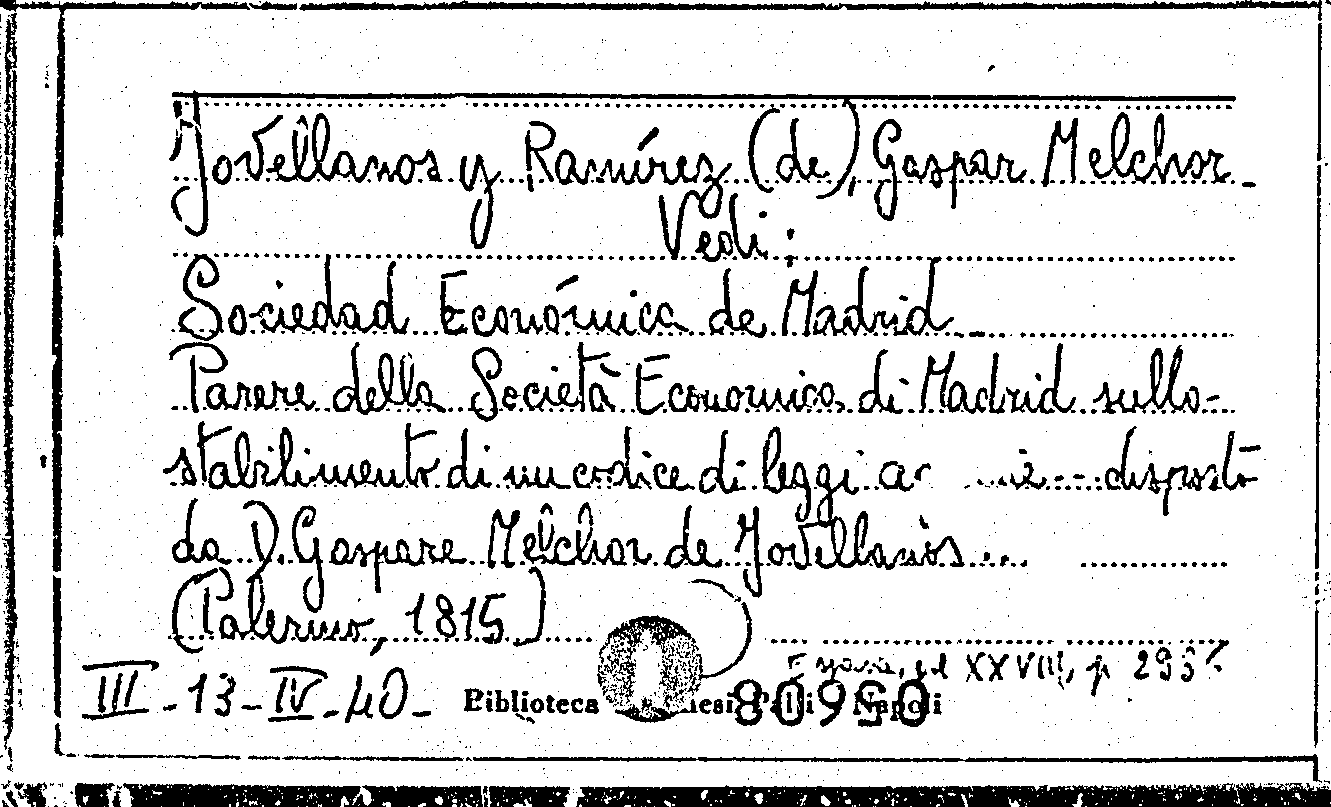 Jovellanos y Ramírez (de), Gaspar Melchor.
Vedi:
Sociedad Económica de Madrid
Parere della Società Economica di Madrid sullo
stabilimento di un codice di leggi disposto
da D. Gaspare Melchor de Jovellanos...
(Palermo, 1815)
XXVIII, p.
III-13-IV-40
Biblioteca Napoli
080950